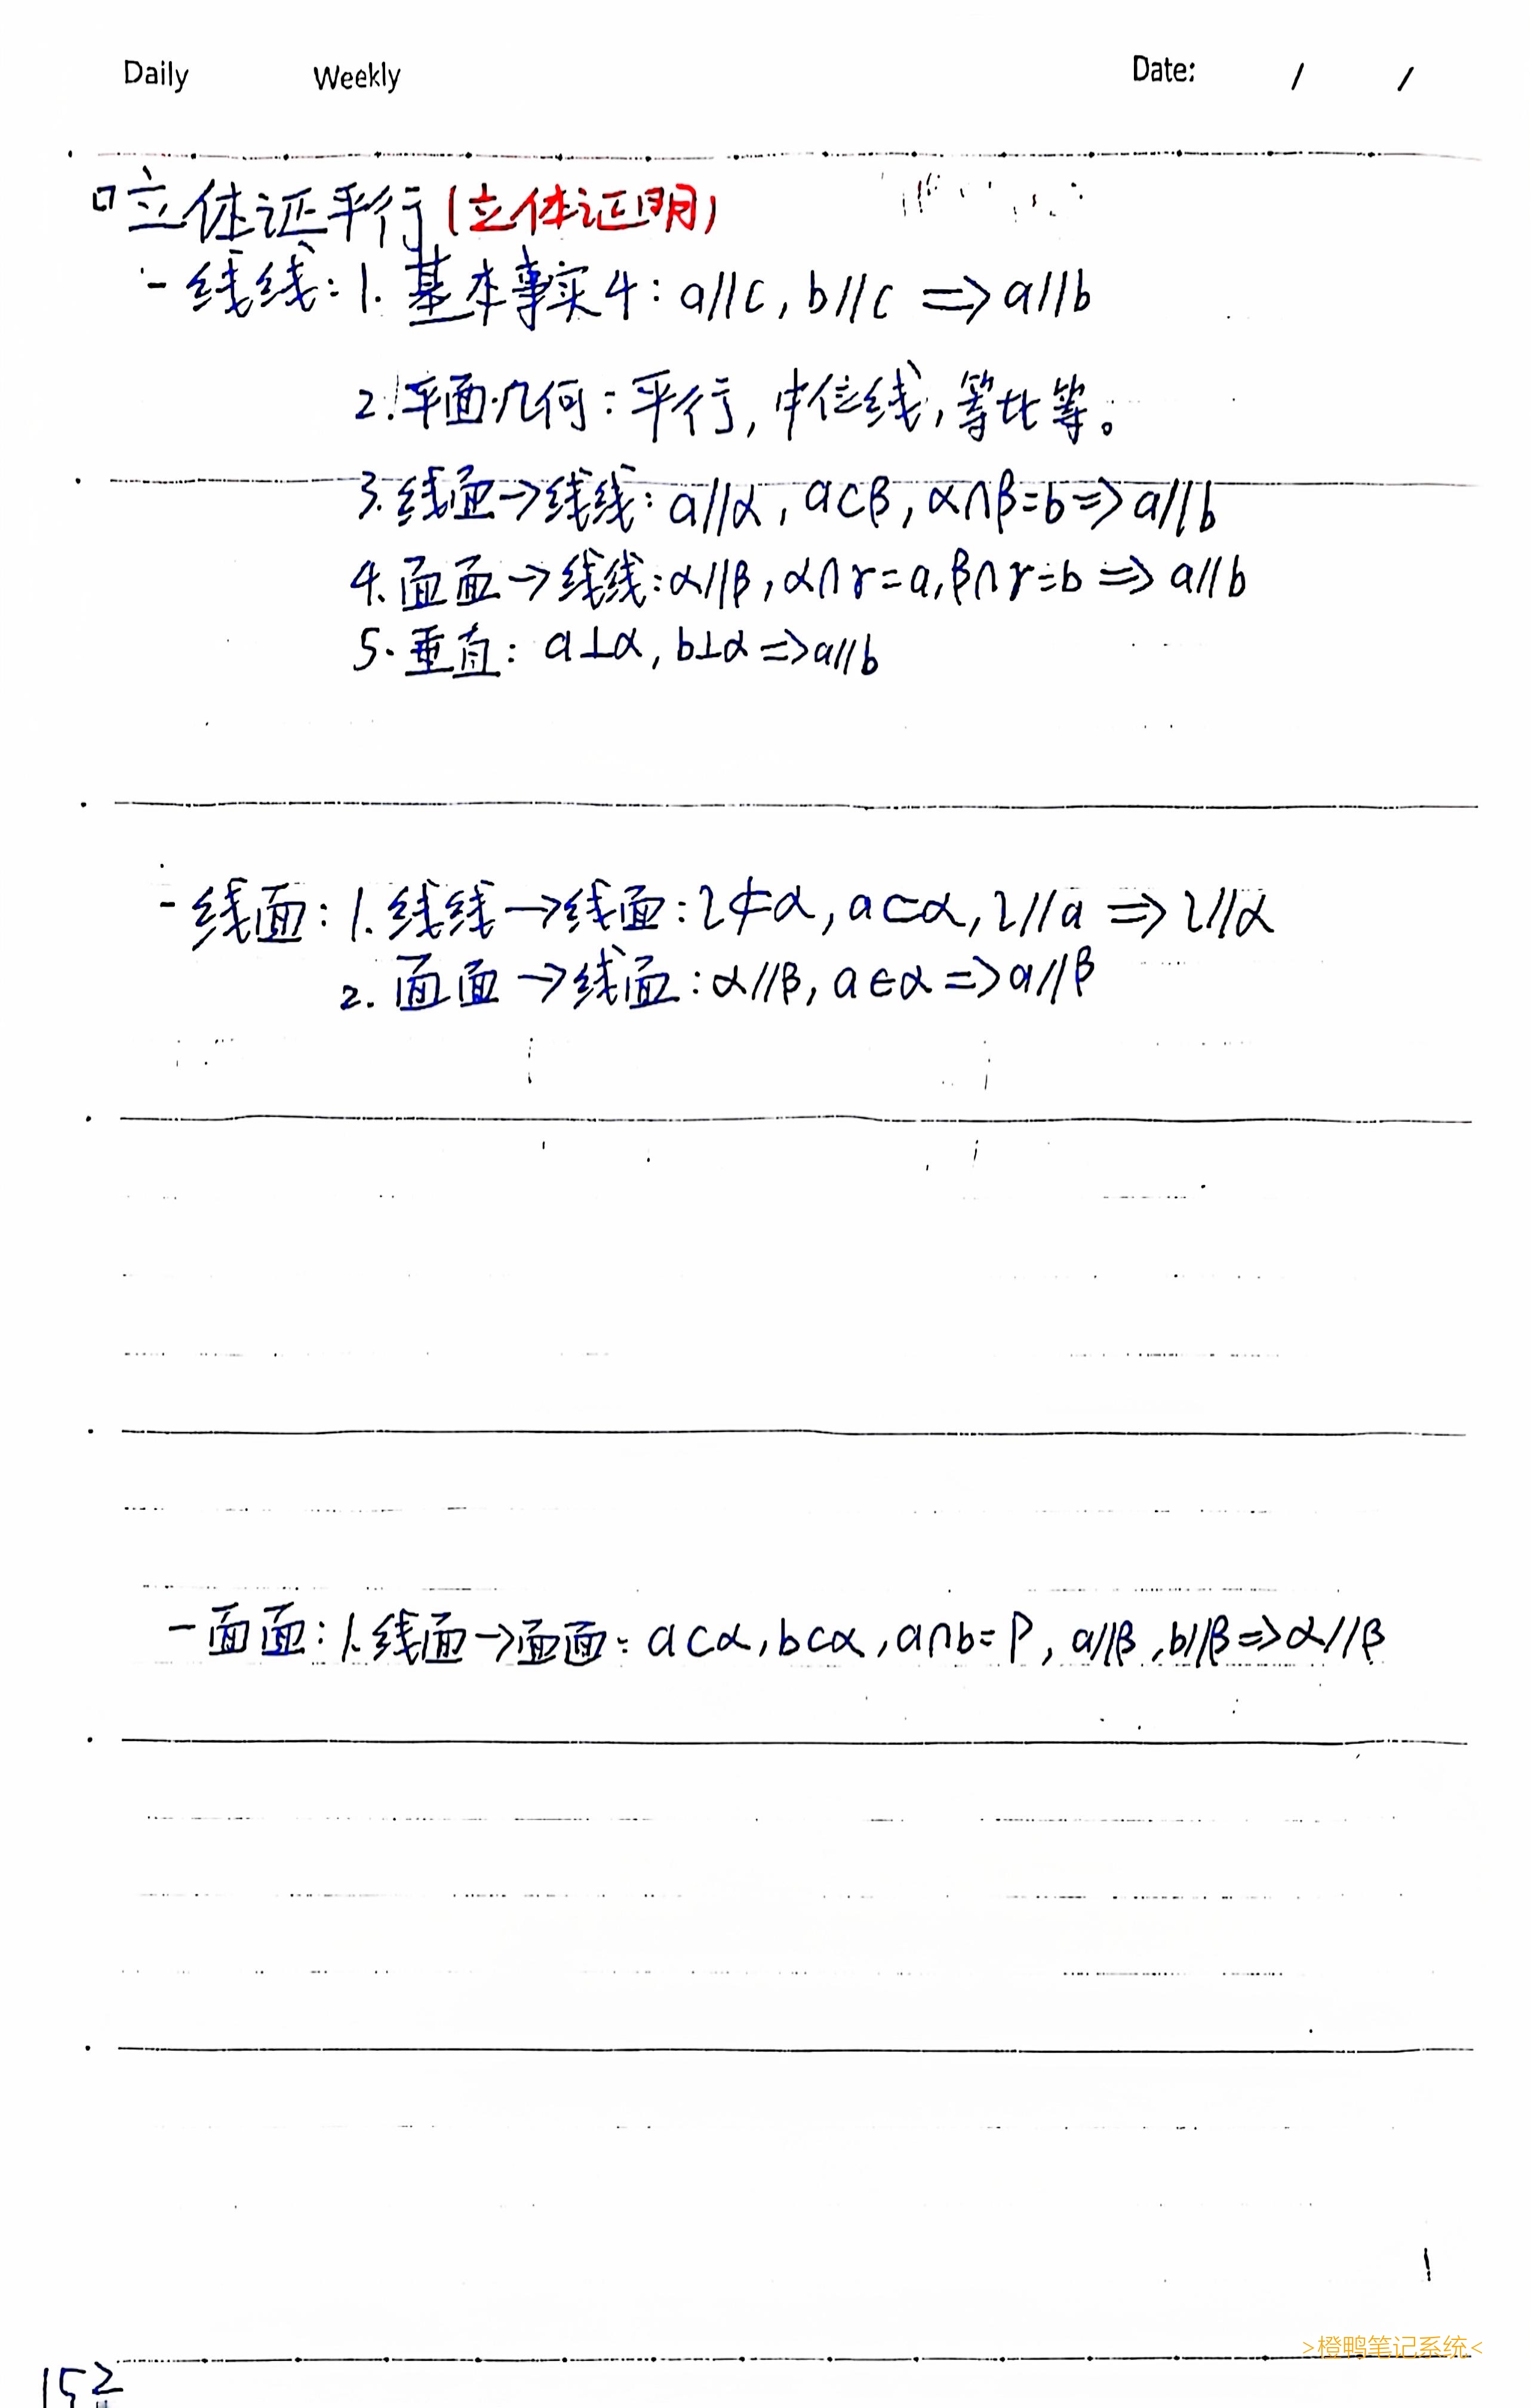 Daily Weekly Date: / /
口立体证平行(立体证明)
- 线线:1. 基本事实4:a//c,b//c ⇒ a//b
2.平面几何:平行,中位线,等比等。
3.线面→线线:a//α,a⊂β,α∩β=b⇒a//b
4.面面→线线:α//β,α∩γ=a,β∩γ=b⇒a//b
5.垂直:a⊥α,b⊥α⇒a//b
- 线面:1.线线→线面:l⊄α,a⊂α,l//a⇒l//α
2.面面→线面:α//β,a∈α⇒a//β
- 面面:1.线面→面面:a⊂α,b⊂α,a∩b=P,a//β,b//β⇒α//β
>橙鸭笔记系统<